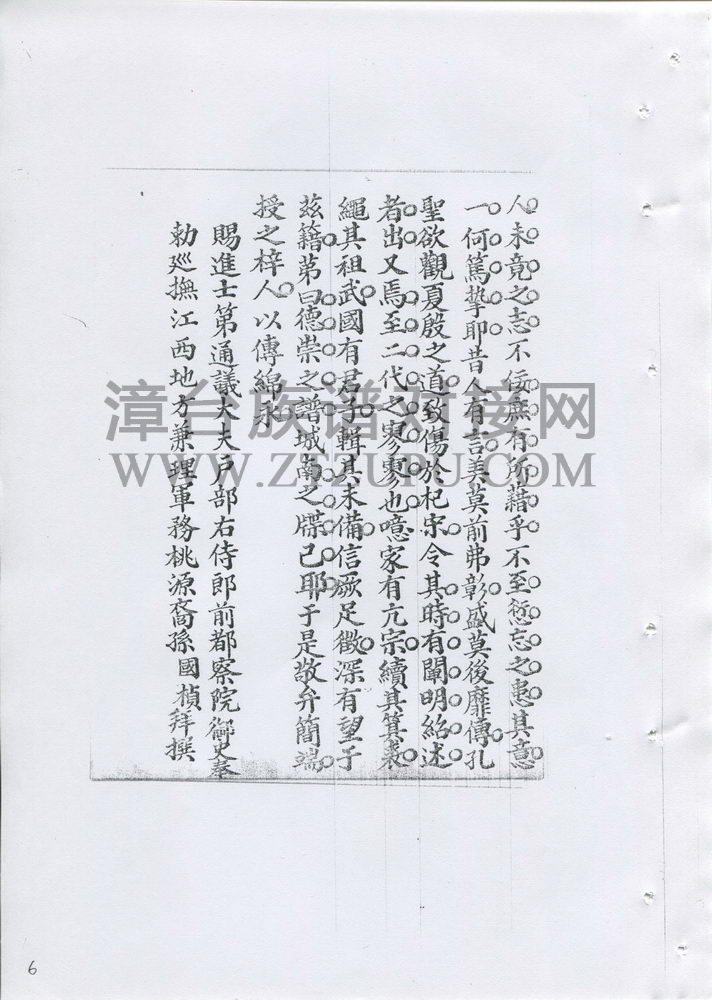 人未竟之志不佞庶有所藉乎不至愆忘之患其意
一何篤摯耶昔人有言美莫前弗彰盛莫後靡傳孔
聖欲觀夏殷之道致傷於杞宋令其時有闡明紹述
者出又焉至二代之寥寥也噫家有亢宗續其箕裘
繩其祖武國有君子輯其未備信厥足徵深有望于
茲籍第曰德崇之譜城南之牒已耶于是敬弁簡端
授之梓人以傳綿永
賜進士第通議大夫戶部右侍郎前都察院御史奉
勅廵撫江西地方兼理軍務桃源裔孫國楨拜撰
漳台族谱对接网
WWW.ZTZUPU.COM
6